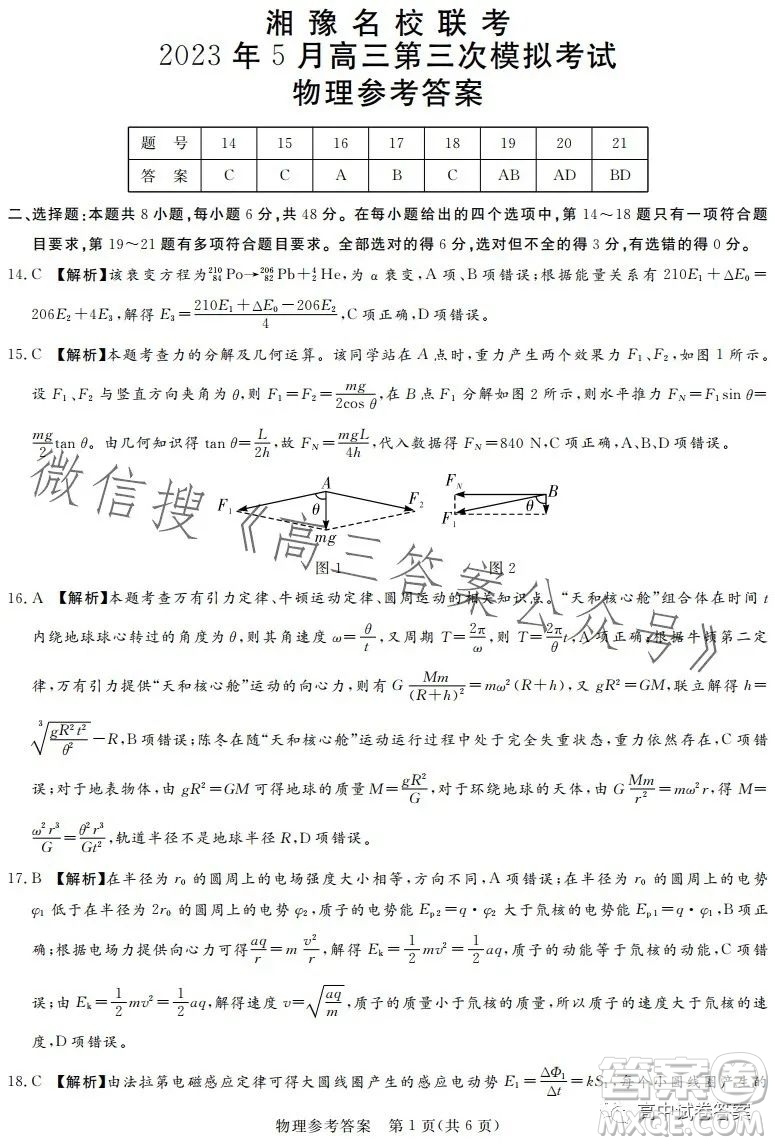 湘豫名校联考
2023年5月高三第三次模拟考试
物理参考答案
题 号 14 15 16 17 18 19 20 21
答 案 C C A B C AB AD BD
二、选择题:本题共8小题,每小题6分,共48分。在每小题给出的四个选项中,第14~18题只有一项符合题
目要求,第19~21题有多项符合题目要求。全部选对的得6分,选对但不全的得3分,有选错的得0分。
14.C 【解析】该衰变方程为²¹⁰₈₄Po→²⁰⁶₈₂Pb+⁴₂He,为α衰变,A项、B项错误;根据能量关系有210E₁+ΔE₀=
206E₂+4E₃,解得E₃=(210E₁+ΔE₀-206E₂)/4,C项正确,D项错误。
15.C 【解析】本题考查力的分解及几何运算。该同学站在A点时,重力产生两个效果力F₁、F₂,如图1所示。
设F₁、F₂与竖直方向夹角为θ,则F₁=F₂=mg/(2cos θ),在B点F₁分解如图2所示,则水平推力F_N=F₁sin θ=
(mg/2)tan θ。由几何知识得tan θ=L/(2h),故F_N=mgL/(4h),代入数据得F_N=840 N,C项正确,A、B、D项错误。
A F_N B
F₁ θ F₂ F₁ θ
mg
图1 图2
16.A 【解析】本题考查万有引力定律、牛顿运动定律、圆周运动的相关知识点。“天和核心舱”组合体在时间t
内绕地球球心转过的角度为θ,则其角速度ω=θ/t,又周期T=2π/ω,则T=(2π/θ)t,A项正确;根据牛顿第二定
律,万有引力提供“天和核心舱”运动的向心力,则有G Mm/(R+h)²=mω²(R+h),又gR²=GM,联立解得h=
∛(gR²t²/θ²)-R,B项错误;陈冬在随“天和核心舱”运动运行过程中处于完全失重状态,重力依然存在,C项错
误;对于地表物体,由gR²=GM可得地球的质量M=gR²/G,对于环绕地球的天体,由G Mm/r²=mω²r,得M=
ω²r³/G=θ²r³/(Gt²),轨道半径不是地球半径R,D项错误。
17.B 【解析】在半径为r₀的圆周上的电场强度大小相等,方向不同,A项错误;在半径为r₀的圆周上的电势
φ₁低于在半径为2r₀的圆周上的电势φ₂,质子的电势能E_p2=q·φ₂大于氚核的电势能E_p1=q·φ₁,B项正
确;根据电场力提供向心力可得aq/r=m v²/r,解得E_k=½mv²=½aq,质子的动能等于氚核的动能,C项错
误;由E_k=½mv²=½aq,解得速度v=√(aq/m),质子的质量小于氚核的质量,所以质子的速度大于氚核的速
度,D项错误。
18.C 【解析】由法拉第电磁感应定律可得大圆线圈产生的感应电动势E₁=ΔΦ₁/Δt=kS₁,每个小圆线圈产生的
物理参考答案 第1页(共6页)
微信搜《高三答案公众号》
答案圈
高中试卷答案